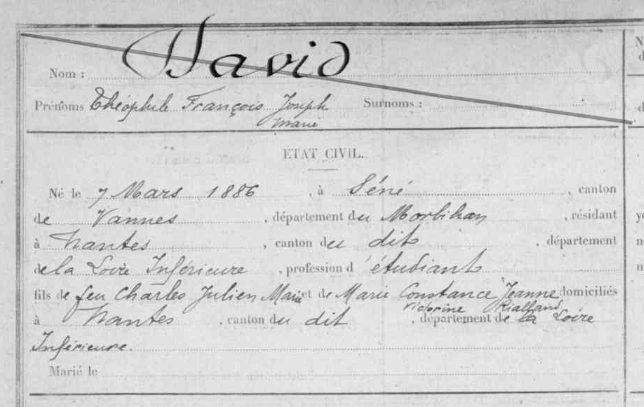 Nom : David
Prénoms Théophile François Joseph Surnoms :
Marie
ÉTAT CIVIL.
Né le 7 Mars 1886 , à Séné , canton
de Vannes , département du Morbihan , résidant
à Nantes , canton du dit , département
de la Loire Inférieure , profession d' étudiant
fils de feu Charles Julien Marie et de Marie Constance Jeanne domiciliés
Victorine Rialland
à Nantes , canton du dit , département de la Loire
Inférieure.
Marié le